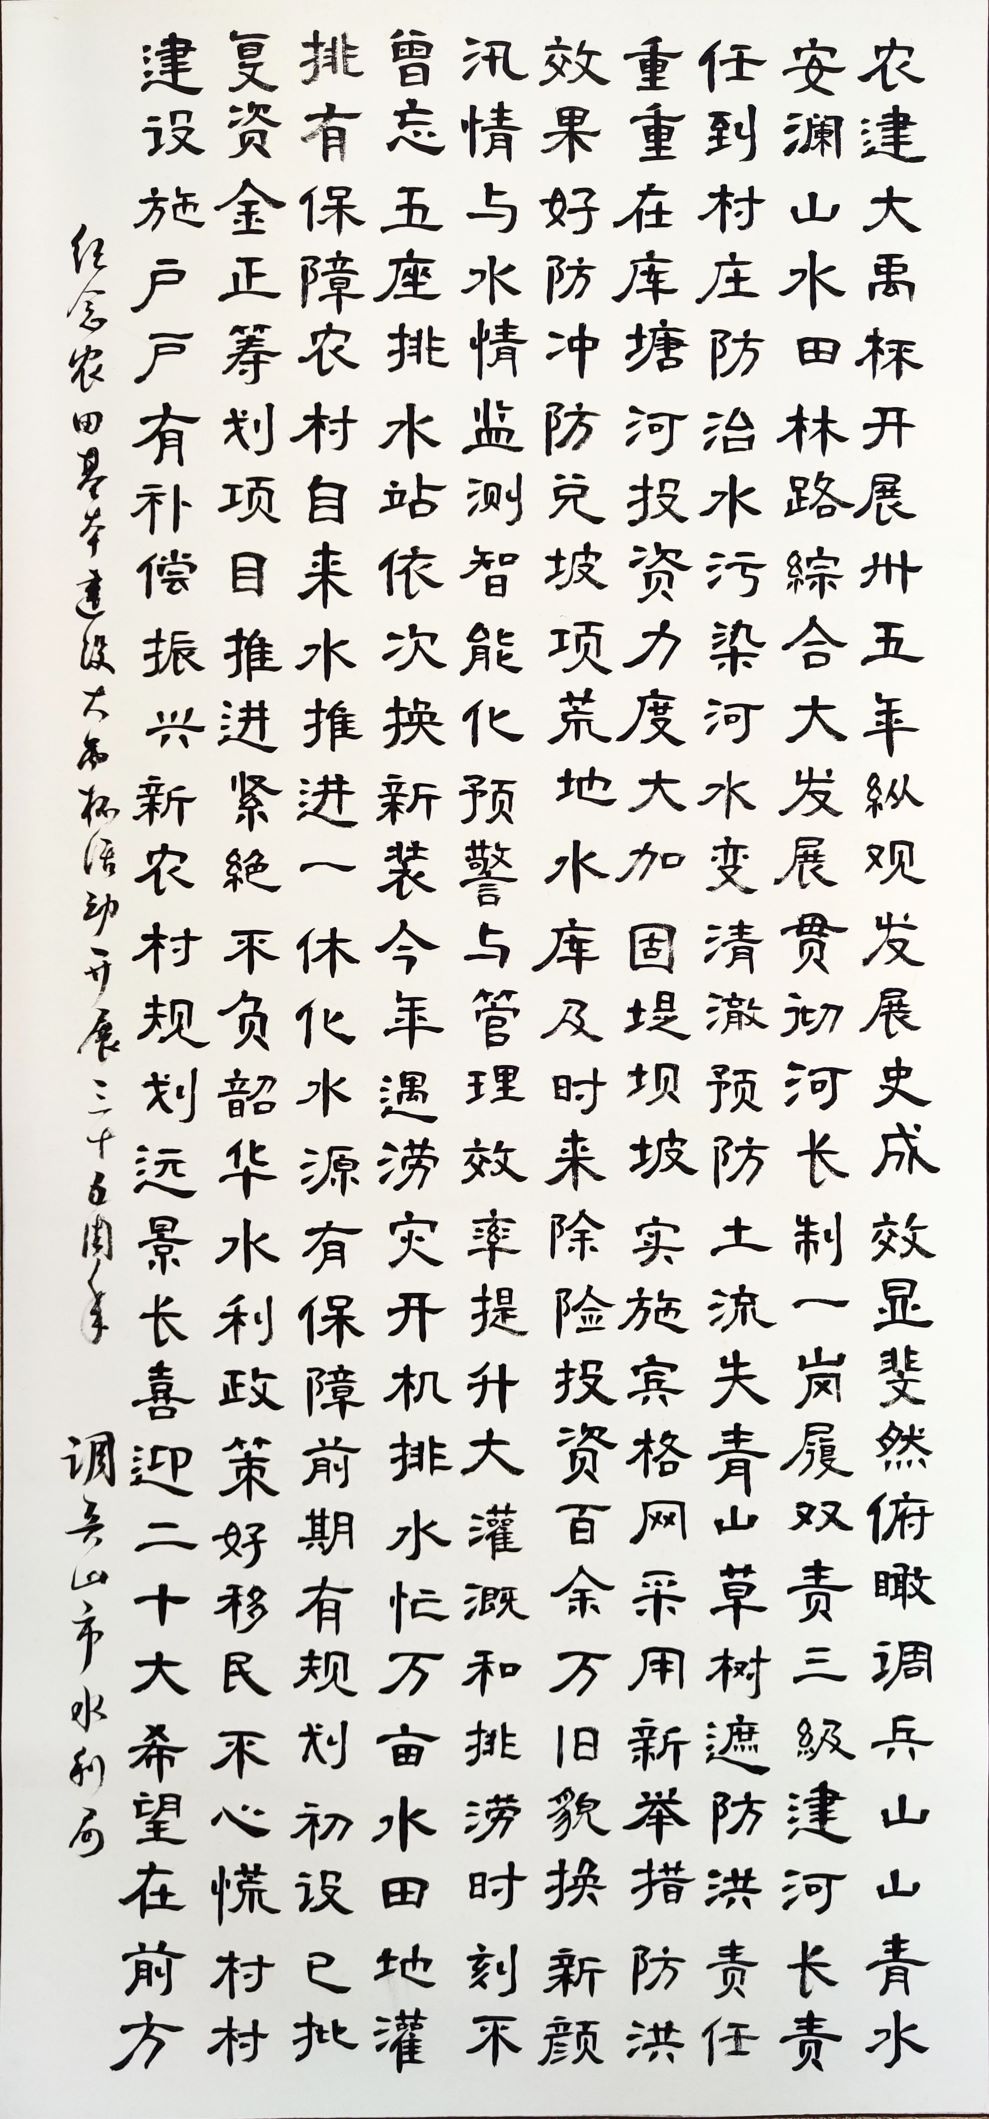 农建大禹杯开展卅五年纵观发展史成效显斐然俯瞰调兵山山青水
安澜山水田林路综合大发展贯彻河长制一岗履双责三级建河长责
任到村庄防治水污染河水变清澈预防土流失青山草树遮防洪责任
重重在库塘河投资力度大加固堤坝坡实施宾格网采用新举措防洪
效果好防冲防兑坡项荒地水库及时来除险投资百余万旧貌换新颜
汛情与水情监测智能化预警与管理效率提升大灌溉和排涝时刻不
曾忘五座排水站依次换新装今年遇涝灾开机排水忙万亩水田地灌
排有保障农村自来水推进一体化水源有保障前期有规划初设已批
复资金正筹划项目推进紧绝不负韶华水利政策好移民不心慌村村
建设施户户有补偿振兴新农村规划远景长喜迎二十大希望在前方
纪念农田基本建设大禹杯活动开展三十五周年
调兵山市水利局